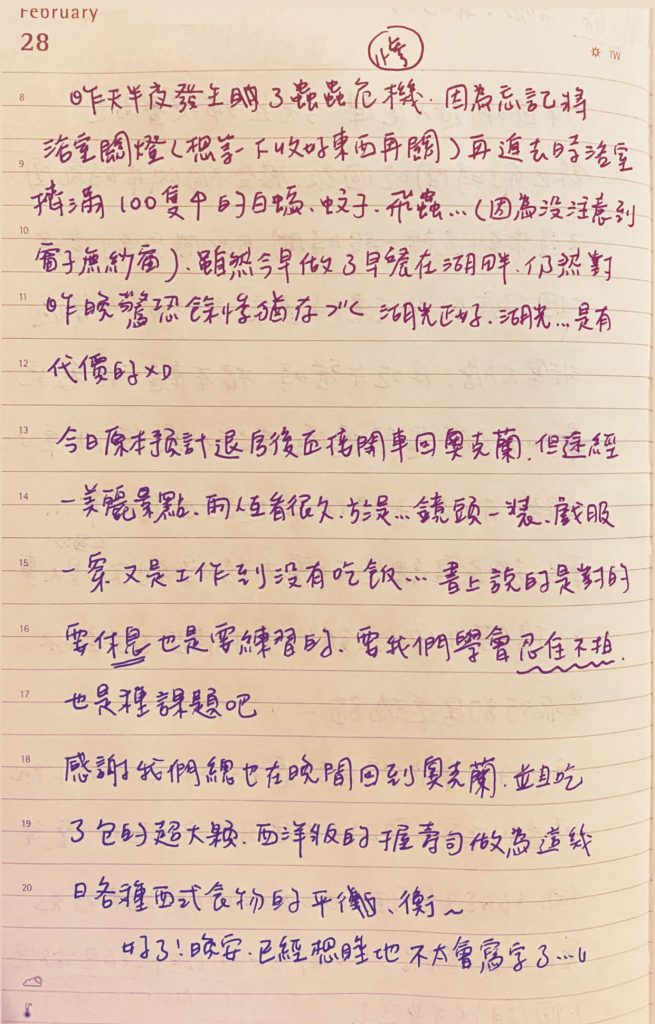 February
28
修
TW
8 昨天半夜發生了蟲蟲危機.因為忘記將
浴室關燈(想等一下收好東西再關)再進去時浴室
9
擠滿100隻↑的白蟻、蚊子、飛蟲…(因為没注意到
10
窗子無紗窗).雖然今早做了早餐在湖畔.仍然對
11 昨晚驚恐餘悸猶存 湖光正好.湖光…是有
12 代價的XD
13 今日原本預計退房後直接開車回奧克蘭.但途經
14 一美麗景點、兩人互看很久.於是…鏡頭一裝、戲服
15 一穿又是工作到没有吃飯… 書上說的是對的
16 要休息也是要練習的、要我們學會忍住不拍.
17 也是種課題吧
18 感謝我們總也在晚間回到奧克蘭.並且吃
19 了包的超大顆.西洋版的握壽司做為這幾
20 日各種西式食物的平衡、衡~
好了!晚安.已經想睡地不太會寫字了…